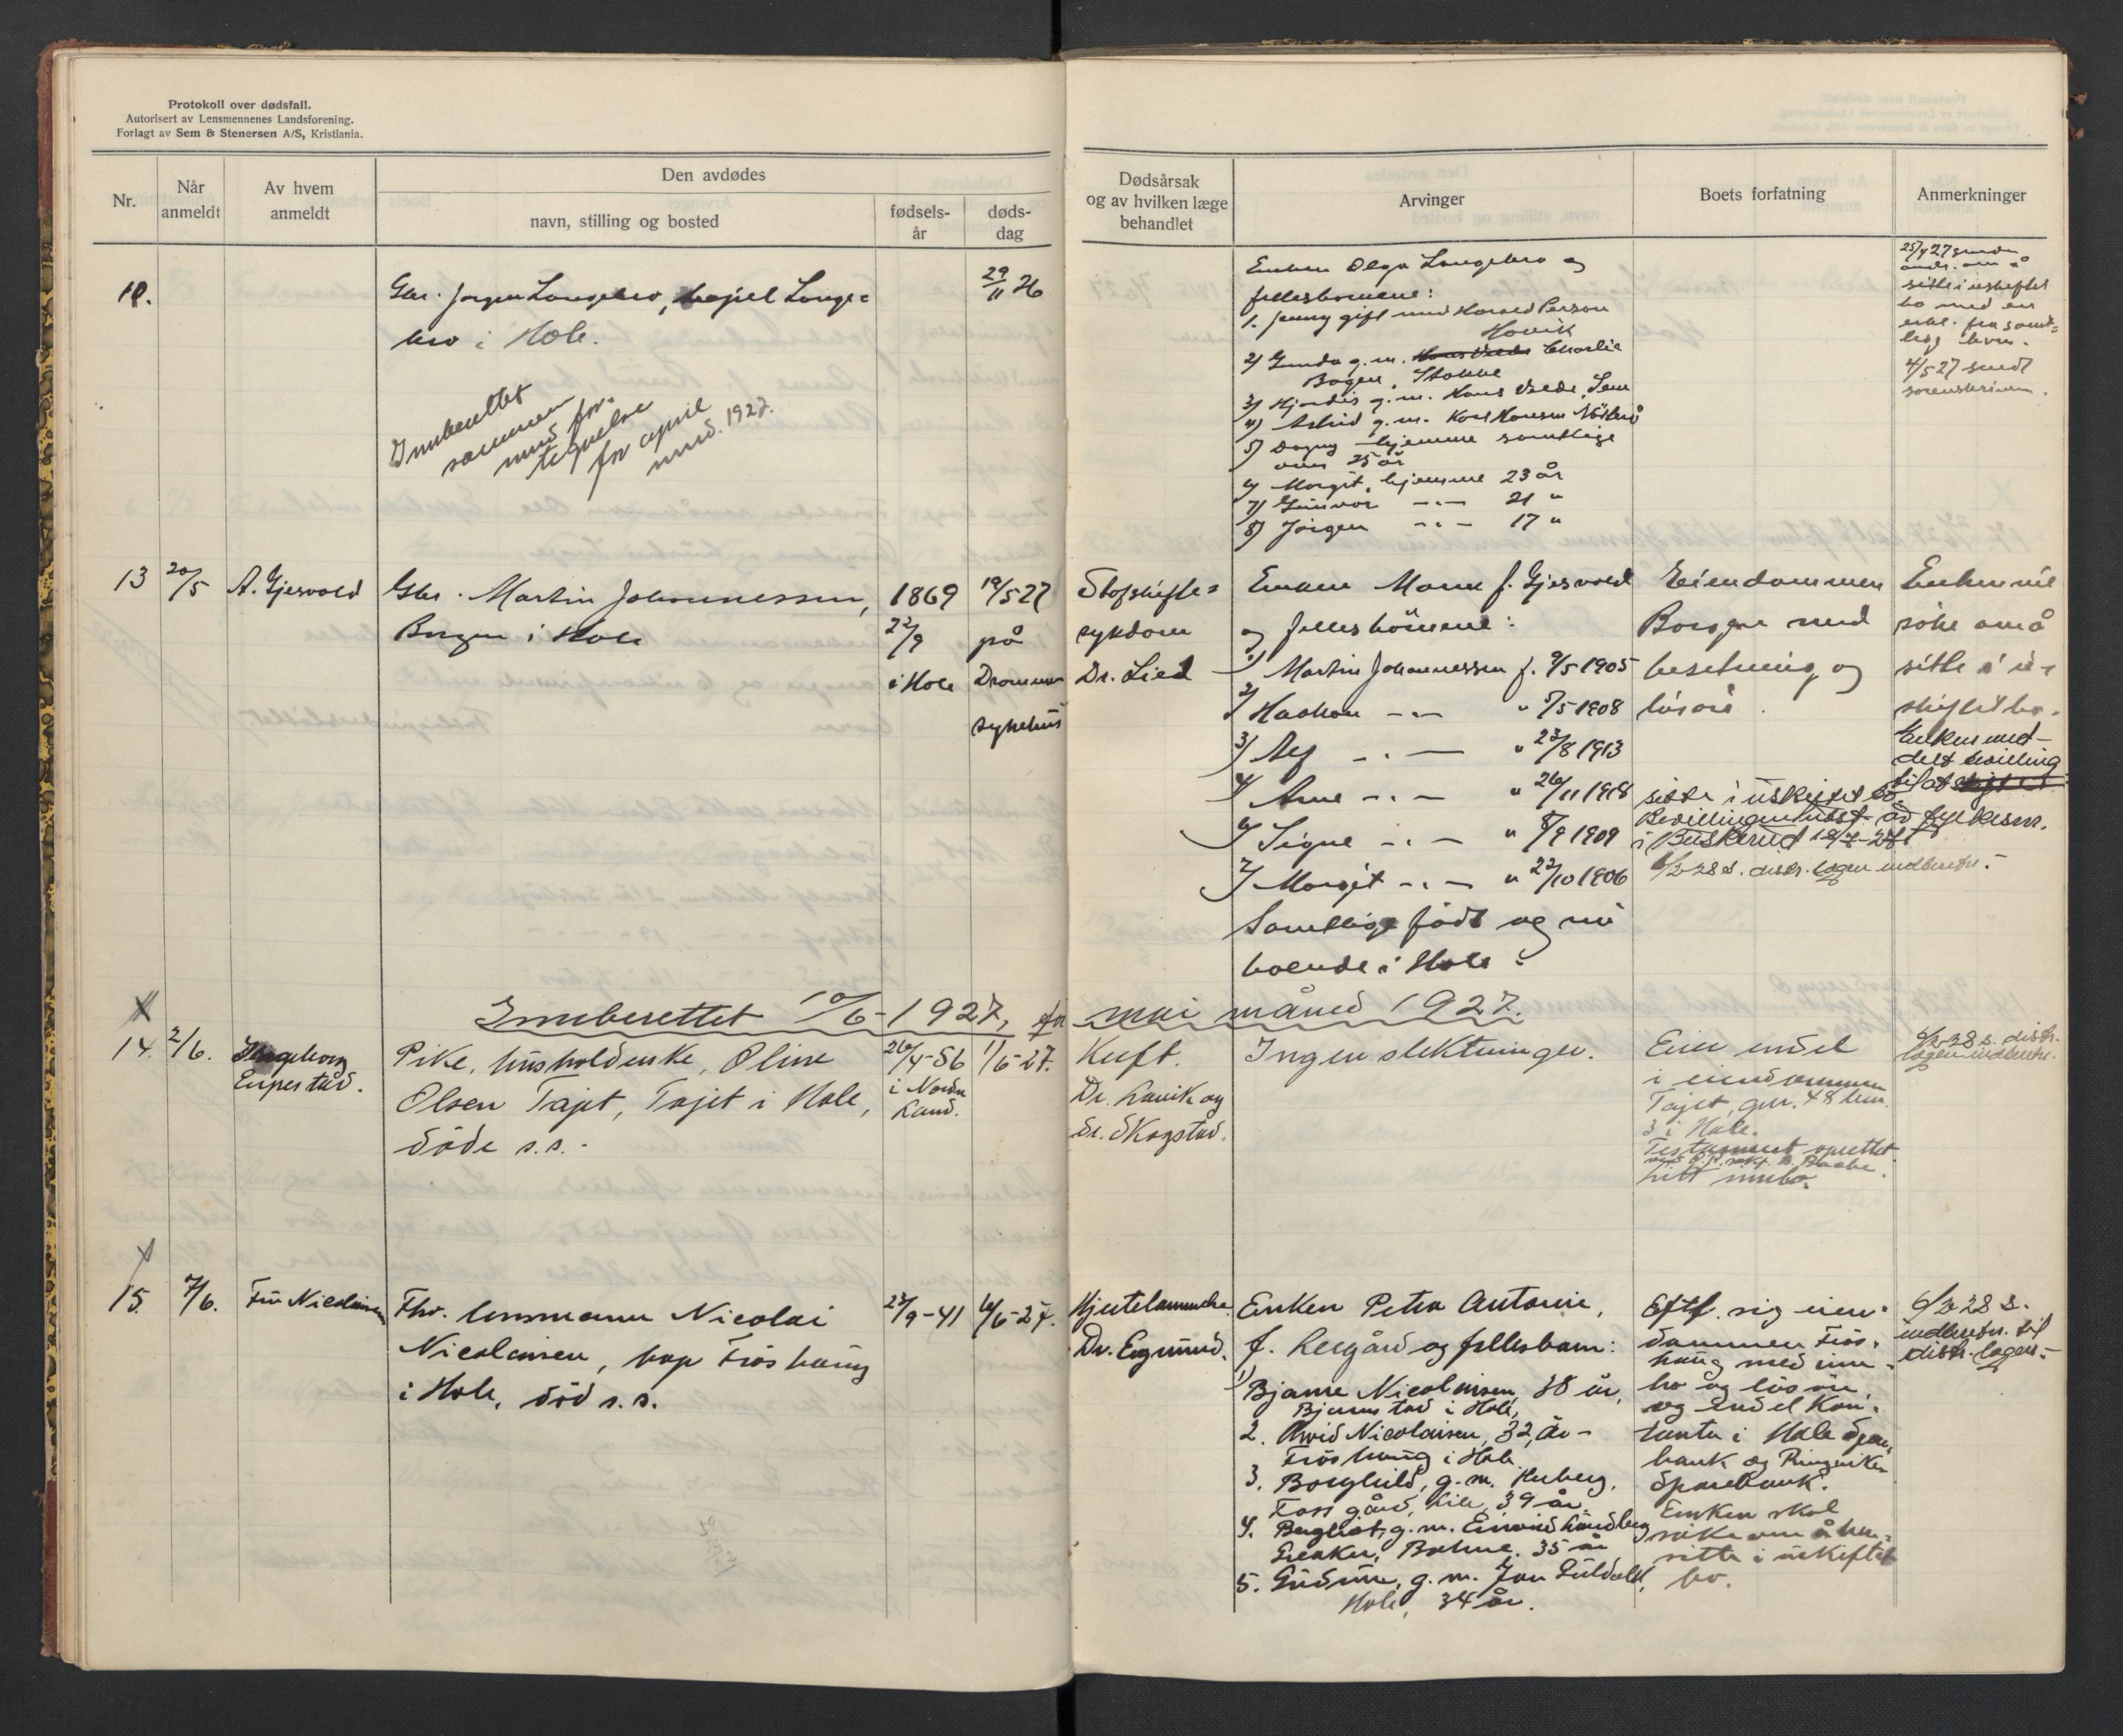 Protokoll over dødsfall.
Autorisert av Lensmennenes Landsforening.
Forlagt av Sem & Stenersen A/S, Kristiania.
Nr.
Når anmeldt
Av hvem anmeldt
Den avdødes
navn, stilling og bosted
fødsels-år
døds-dag
Dødsårsak og av hvilken læge behandlet
Arvinger
Boets forfatning
Anmerkninger
Gbr. Jørgen Longebro,
bro i Hole.
29/11 26
Innberettet
sammen
med for-
tegnelse
for april
mnd. 1927.
Enken Olga Longebro og
fellesbarnene:
1. Jenny gift med Harald Person
Hovik
2) Gunda g.m. Charlie
Bogen, Stokke
3) Hjørdis g.m. Hans
4) Astrid g.m. Karl Hansen
5) Dagny hjemme samtlige
over 25 år
6) Margit, hjemme 23 år
7) Gunvor -"- 21 "
8) Jørgen -"- 17 "
25/4 27
sitte i uskiftet
bo med
4/5 27 sendt
sorenskriveren.
13
20/5
A. Gjesvold
Gbr. Martin Johannessen,
Borgen i Hole
1869
22/9
i Hole
19/5 27
på
Drammen
sykehus
Stofskifte=
sykdom
Dr. Lied
Enken Maren f. Gjesvold
og fellesbörnene:
1) Martin Johannessen f. 9/5 1905
2) Haakon -"- " 5/5 1908
3) Alf -"- " 23/8 1913
4) Arne -"- " 26/11 1918
6) Signe -"- " 8/9 1909
7) Margit -"- " 22/10 1906
Samtlige födt og nu
boende i Hole.
Eiendommen
Borgen med
besetning og
lösöre.
Enken vil
söke om å
sitte i u-
skiftet bo.
Enken med-
delt bevilling
til at
sitte i uskiftet bo
Bevillingen utst. av fylkesm.
i Buskerud
6/2-28 s. distr. lagen indberetn.
Innberettet 10/6-1927, for mai måned 1927.
14.
2/6.
Ingeborg
Enperstad.
Pike, husholderske, Oline
Olsen Tajet, Tajet i Hole,
döde s.s.-
26/4-56
i Nordre
Land.
1/6-27.
Kreft.
Dr. Lavik og
dr. Skogstad.
Ingen slektninger.
Eier endel
i eiendommen
Tajet, gnr. 48 bnr.
3 i Hole.
Testament oprettet
litt innbo.
6/2-28 s. distr.
lagen indberetn.
15.
7/6.
Fru Nicolaisen
Fhv. lensmann Nicolai
Nicolaisen, bop Fröshaug
i Hole, död s.s.
23/9-41
6/6-27.
Hjertelammelse.
Dr. Engmund.
Enken Petra Antonie,
f. Lesgård og fellesbarn:
1) Bjarne Nicolaisen, 38 år,
Bjørnstad i Hole,
2. Arvid Nicolaisen, 32 år -
Fröshaug i Hole
3. Borghild, g.m. Huberg,
Foss gård, Lier, 39 år.
4. Bergliot, g.m. Eivind Lundberg
35 år
5. Gudrun, g.m. Jon Guldal,
Hole, 34 år.
Eftf. sig eien-
dommen Frös-
haug med inn-
bo og lösöre,
og endel kon-
tanter i Hole Spare-
bank og Ringerikes
Sparebank.
Enken skal
söke om å hen-
sitte i uskiftet
bo.
6/2 28 s.
indberetn. til
distr. lagen.-